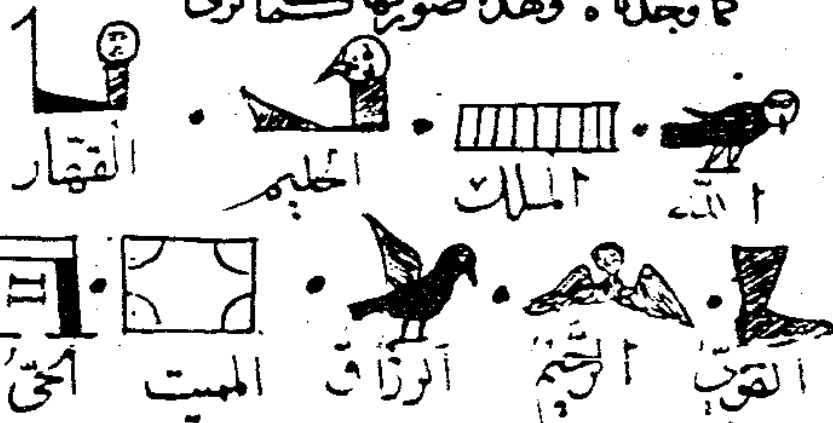 كما وجدنا ه وهذه صورتها كما ترى
اللّه الملك الحليم القهّار
القويّ الرّحيم الرزاق المميت الحيّ